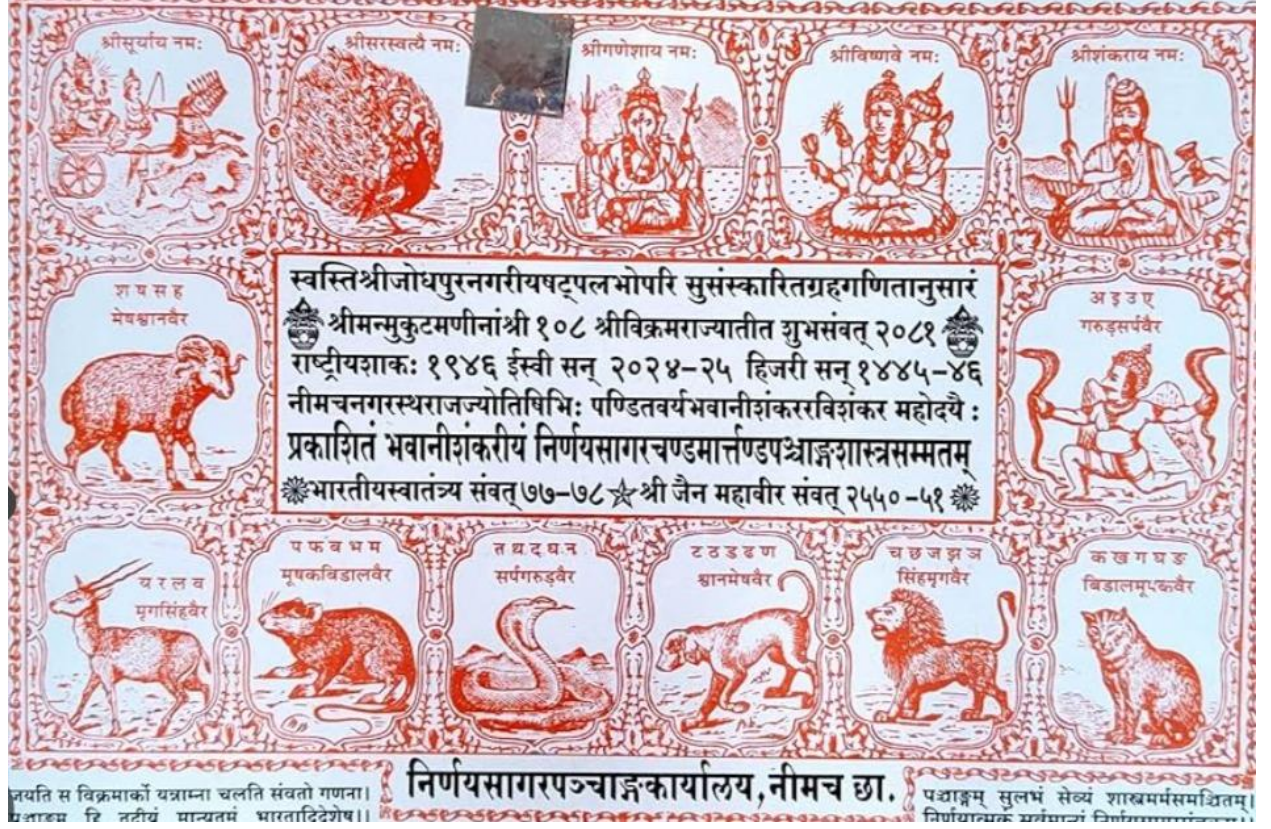 श्रीसूर्याय नमः
श्रीसरस्वत्यै नमः
श्रीगणेशाय नमः
श्रीविष्णवे नमः
श्रीशंकराय नमः
श ष स ह
मेषश्वानवैर
स्वस्तिश्रीजोधपुरनगरीयषट्पलभोपरि सुसंस्कारितग्रहगणितानुसारं
श्रीमन्मुकुटमणीनांश्री १०८ श्रीविक्रमराज्यातीत शुभसंवत् २०८१
राष्ट्रीयशाकः १९४६ ईस्वी सन् २०२४-२५ हिजरी सन् १४४५-४६
नीमचनगरस्थराजज्योतिषिभिः पण्डितवर्यभवानीशंकररविशंकर महोदयैः
प्रकाशितं भवानीशंकरीयं निर्णयसागरचण्डमार्त्तण्डपञ्चाङ्गशास्त्रसम्मतम्
भारतीयस्वातंत्र्य संवत् ७७-७८ श्री जैन महावीर संवत् २५५०-५१
अ इ उ ए
गरुड़सर्पवैर
य र ल व
मृगसिंहवैर
प फ ब भ म
मूषकबिडालवैर
त थ द ध न
सर्पगरुड़वैर
ट ठ ड ढ ण
श्वानमेषवैर
च छ ज झ ञ
सिंहमृगवैर
क ख ग घ ङ
बिडालमूषकवैर
निर्णयसागरपञ्चाङ्गकार्यालय, नीमच छा.
जयति स विक्रमार्को यन्नाम्ना चलति संवतो गणना।
पञ्चाङ्गम् सुलभं सेव्यं शास्त्रमर्मसमञ्चितम्।